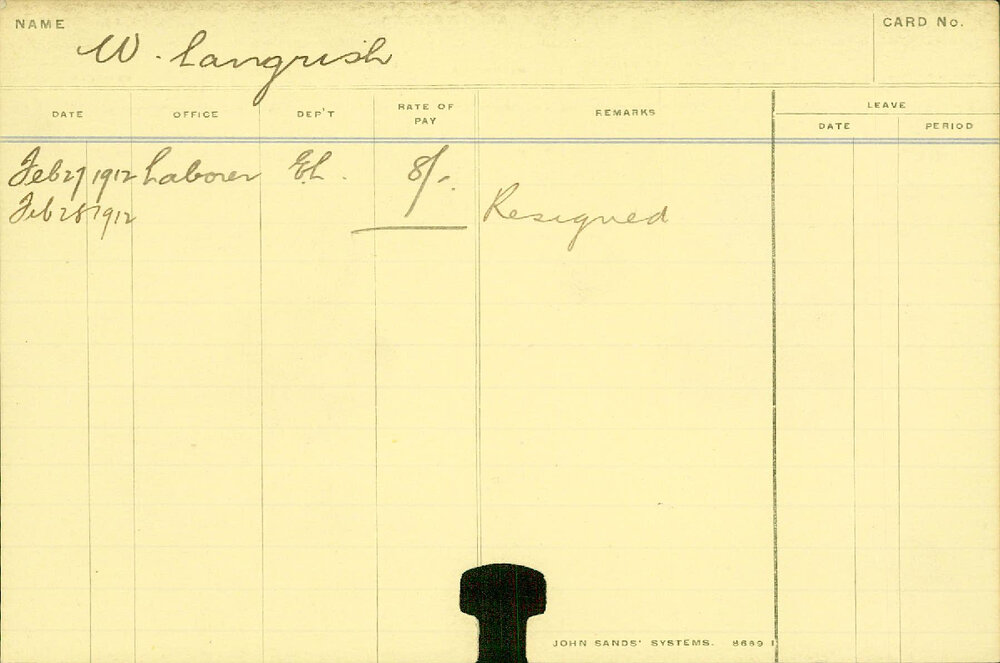 NAME W. Langrish CARD No.
DATE OFFICE DEP'T RATE OF PAY REMARKS LEAVE
DATE PERIOD
Feb 27 1912 Laborer E.L. 8/-.
Feb 28 1912 Resigned
JOHN SANDS' SYSTEMS. 8689 1